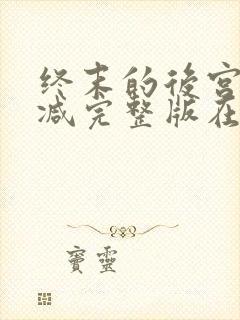 终末的後宫
减完整版在
寳靈